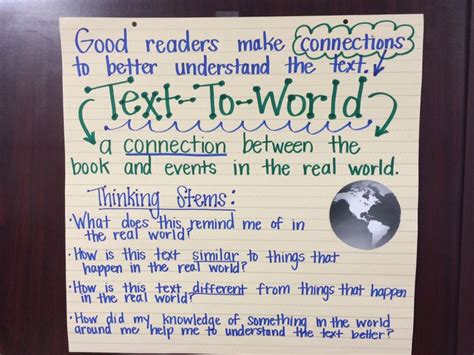 Good readers make connections
to better understand the text.
Text-To-World
a connection between the
book and events in the real world.
Thinking Stems:
• What does this remind me of in
the real world?
• How is this text similar to things that
happen in the real world?
• How is this text different from things that happen
in the real world?
• How did my knowledge of something in the world
around me help me to understand the text better?